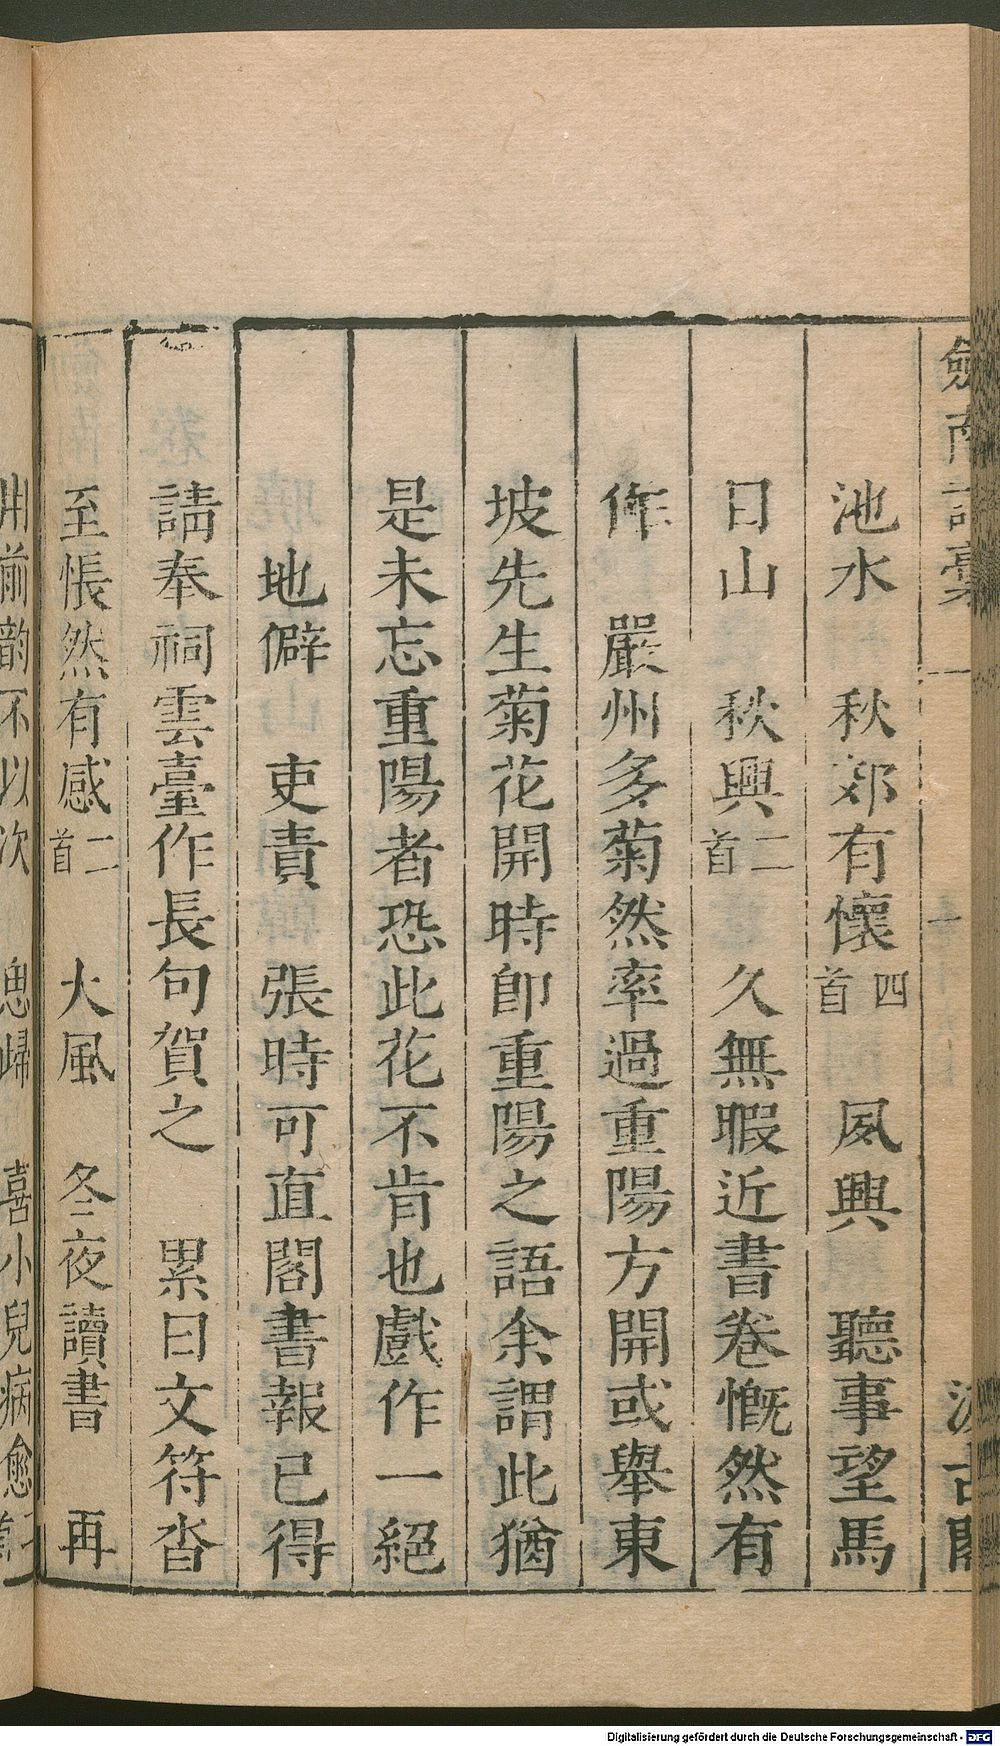 劍南詩稾 一 汲古閣
池水 秋郊有懷四首 夙興 聽事望馬
日山 秋興二首 久無暇近書卷慨然有
作 嚴州多菊然率過重陽方開或舉東
坡先生菊花開時卽重陽之語余謂此猶
是未忘重陽者恐此花不肯也戲作一絕
地僻 吏責 張時可直閣書報已得
請奉祠雲臺作長句賀之 累日文符沓
至悵然有感二首 大風 冬夜讀書 再
用前韵不以次 思歸 喜小兒病愈二
Digitalisierung gefördert durch die Deutsche Forschungsgemeinschaft - DFG